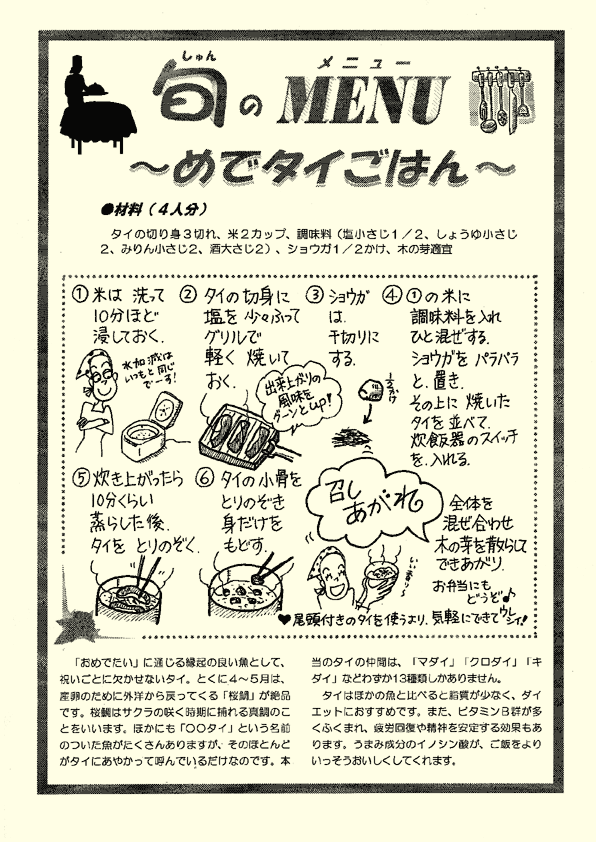 しゅん メニュー
旬のMENU
～めでタイごはん～
●材料（４人分）
タイの切り身３切れ、米２カップ、調味料（塩小さじ１／２、しょうゆ小さじ
２、みりん小さじ２、酒大さじ２）、ショウガ１／２かけ、木の芽適宜
① 米は 洗って
10分ほど
浸しておく.
水加減は
いつもと同じ
でーす!
② タイの切身に
塩を少々ふって
グリルで
軽く 焼いて
おく.
出来上がりの
風味を
グーンとup!
③ ショウガ
は.
千切りに
する.
1/2かけ
④ ①の米に
調味料を入れ
ひと混ぜする.
ショウガを パラパラ
と. 置き.
その上に 焼いた
タイを 並べて.
炊飯器のスイッチ
を. 入れる.
⑤ 炊き上がったら
10分くらい
蒸らした後.
タイを とりのぞく.
⑥ タイの小骨を
とりのぞき
身だけを
もどす.
召し
あがれ
全体を
混ぜ合わせ
木の芽を散らして
できあがり.
いい香り〜
お弁当にも
どうぞ♪
♥尾頭付きのタイを使うより、気軽にできてウレシイ!
「おめでたい」に通じる縁起の良い魚として、
祝いごとに欠かせないタイ。とくに４～５月は、
産卵のために外洋から戻ってくる「桜鯛」が絶品
です。桜鯛はサクラの咲く時期に捕れる真鯛のこ
とをいいます。ほかにも「〇〇タイ」という名前
のついた魚がたくさんありますが、そのほとんど
がタイにあやかって呼んでいるだけなのです。本
当のタイの仲間は、「マダイ」「クロダイ」「キ
ダイ」などわずか13種類しかありません。
タイはほかの魚と比べると脂質が少なく、ダイ
エットにおすすめです。また、ビタミンＢ群が多
くふくまれ、疲労回復や精神を安定する効果もあ
ります。うまみ成分のイノシン酸が、ご飯をより
いっそうおいしくしてくれます。